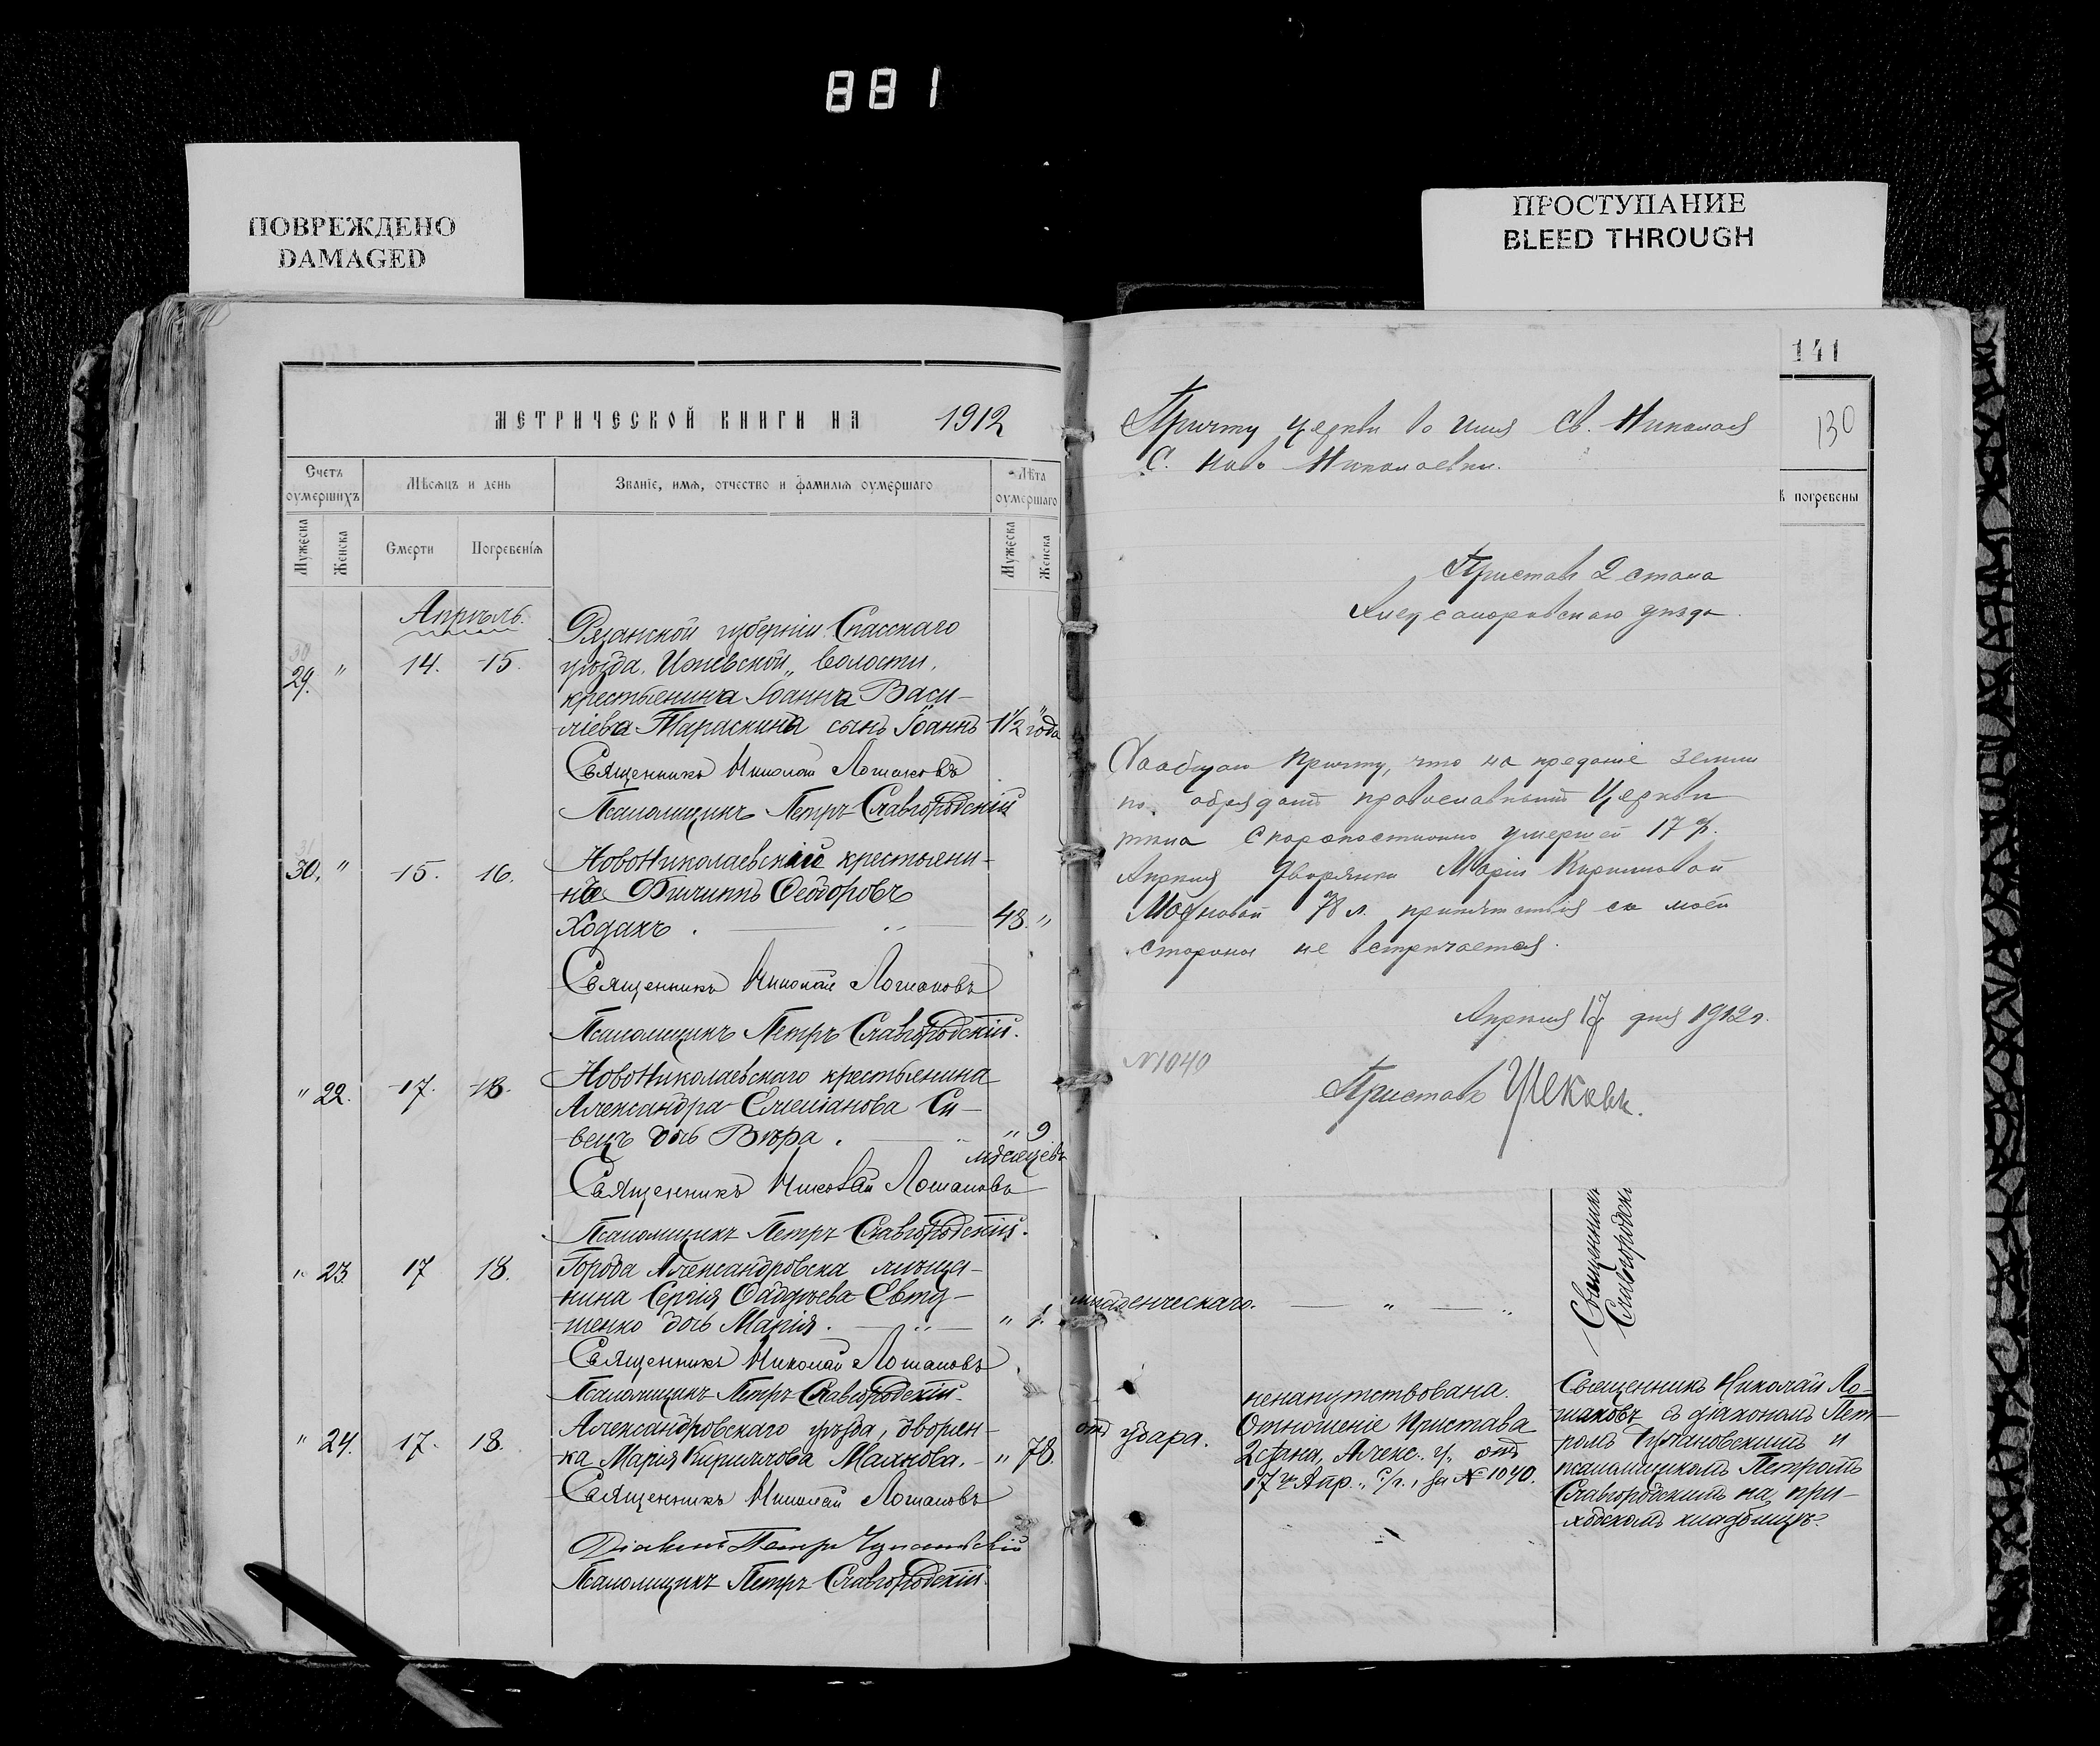 881
ПОВРЕЖДЕНО
DAMAGED
ПРОСТУПАНИЕ
BLEED THROUGH
МЕТРИЧЕСКОЙ КНИГИ НА 1912
Счетъ оумершихъ
Мѣсяцъ и день
Званіе, имя, отчество и фамилія оумершаго
Лѣта оумершаго
Мужеска
Женска
Смерти
Погребенія
Мужеска
Женска
Апрѣль.
Рязанской губерніи Спасскаго
29. " 14. 15. уѣзда, Ижевской волости,
крестьянина Іоанна Васи-
ліева Тараскина сынъ Іоаннъ 1½ года
Священникъ Николай Лошаковъ
Псаломщикъ Петръ Славгородскій
30. " 15. 16. НовоНиколаевскій крестьяни-
нъ Филиппъ Ѳеодоровъ
Ходакъ. — " — 48. "
Священникъ Николай Лошаковъ
Псаломщикъ Петръ Славгородскій.
" 22. 17. 18. НовоНиколаевскаго крестьянина
Александра Си-
вецъ дочь Вѣра. — " 9
мѣсяцевъ
Священникъ Николай Лошаковъ
Псаломщикъ Петръ Славгородскій.
" 23 17 18. Города Александровска мѣща-
нина Сергія Евту-
шенко дочь Марія. — " — " 1.
Священникъ Николай Лошаковъ
Псаломщикъ Петръ Славгородскій.
" 24. 17. 18. Александровскаго уѣзда, дворян-
ка Марія Кириллова Маланова. — " 78.
Священникъ Николай Лошаковъ
Діаконъ Петръ
Псаломщикъ Петръ Славгородскій.
141
130
погребены
Причту церкви во имя Св. Николая
С. Ново Николаевки.
Приставъ 2 стана
Александровскаго уѣзда.
Сообщаю Причту, что на преданіе земли
по обрядамъ православной Церкви
скоропостижно умершей 17 ч.
Апрѣля Дворянки Маріи Кирилловой
78 л. препятствія съ моей
стороны не встрѣчается.
Апрѣля 17 дня 1912 г.
№ 1040
Приставъ
младенческаго. — " — "
Священникъ
Славгородскі
отъ удара.
ненапутствована.
Отношеніе Пристава
2 стана, Алекс. у., отъ
17 г. Апр., с/г., за № 1040.
Священникъ Николай Ло-
шаковъ съ діакономъ Пет-
ромъ и
псаломщикомъ Петромъ
Славгородскимъ на при-
ходскомъ кладбищѣ.